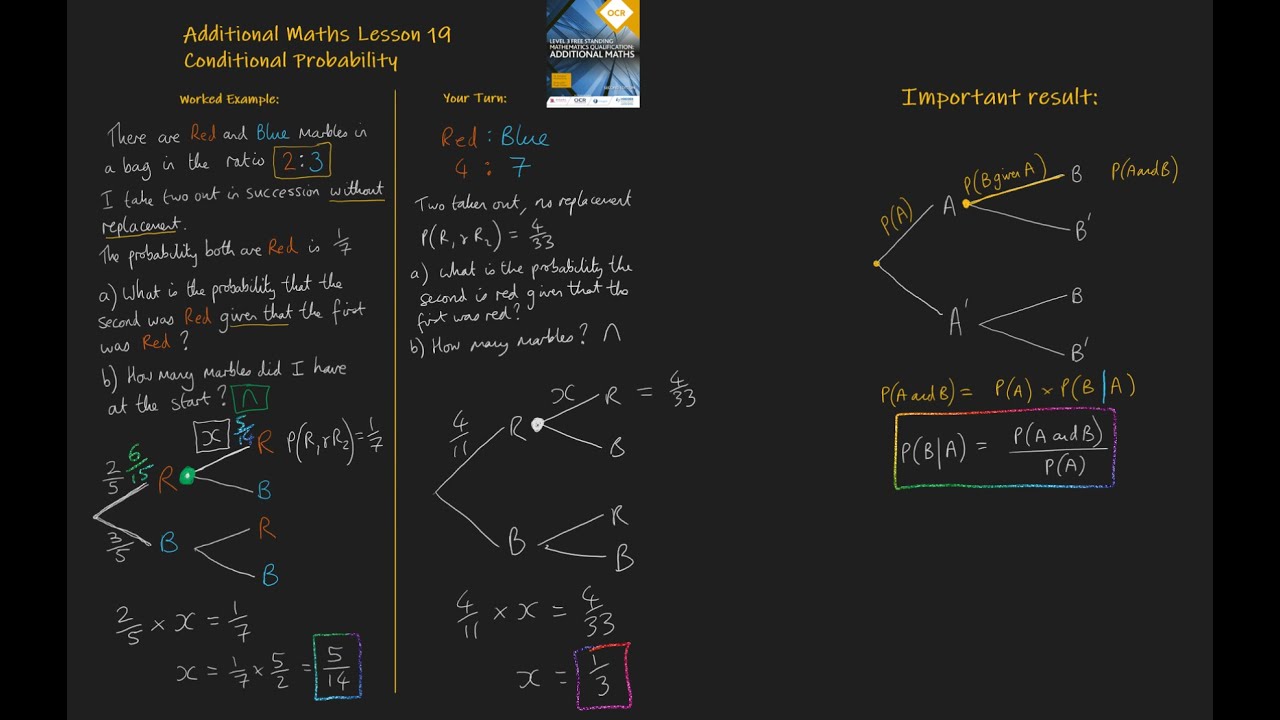 Additional Maths Lesson 19
Conditional Probability
OCR
LEVEL 3 FREE STANDING
MATHEMATICS QUALIFICATION:
ADDITIONAL MATHS
Worked Example:
There are Red and Blue marbles in
a bag in the ratio 2:3
I take two out in succession without
replacement.
The probability both are Red is 1/7
a) What is the probability that the
second was Red given that the first
was Red?
b) How many marbles did I have
at the start? n
x 5/14
R P(R₁ n R₂) = 1/7
2/5 6/15 R
B
3/5 B
R
B
2/5 × x = 1/7
x = 1/7 × 5/2 = 5/14
Your Turn:
Red : Blue
4 : 7
Two taken out, no replacement
P(R₁ n R₂) = 4/33
a) What is the probability the
second is red given that the
first was red?
b) How many marbles? n
x R = 4/33
4/11 R
B
R
B
B
4/11 × x = 4/33
x = 1/3
Important result:
P(B given A) B P(A and B)
P(A) A
B'
B
A'
B'
P(A and B) = P(A) × P(B|A)
P(B|A) = P(A and B)/P(A)